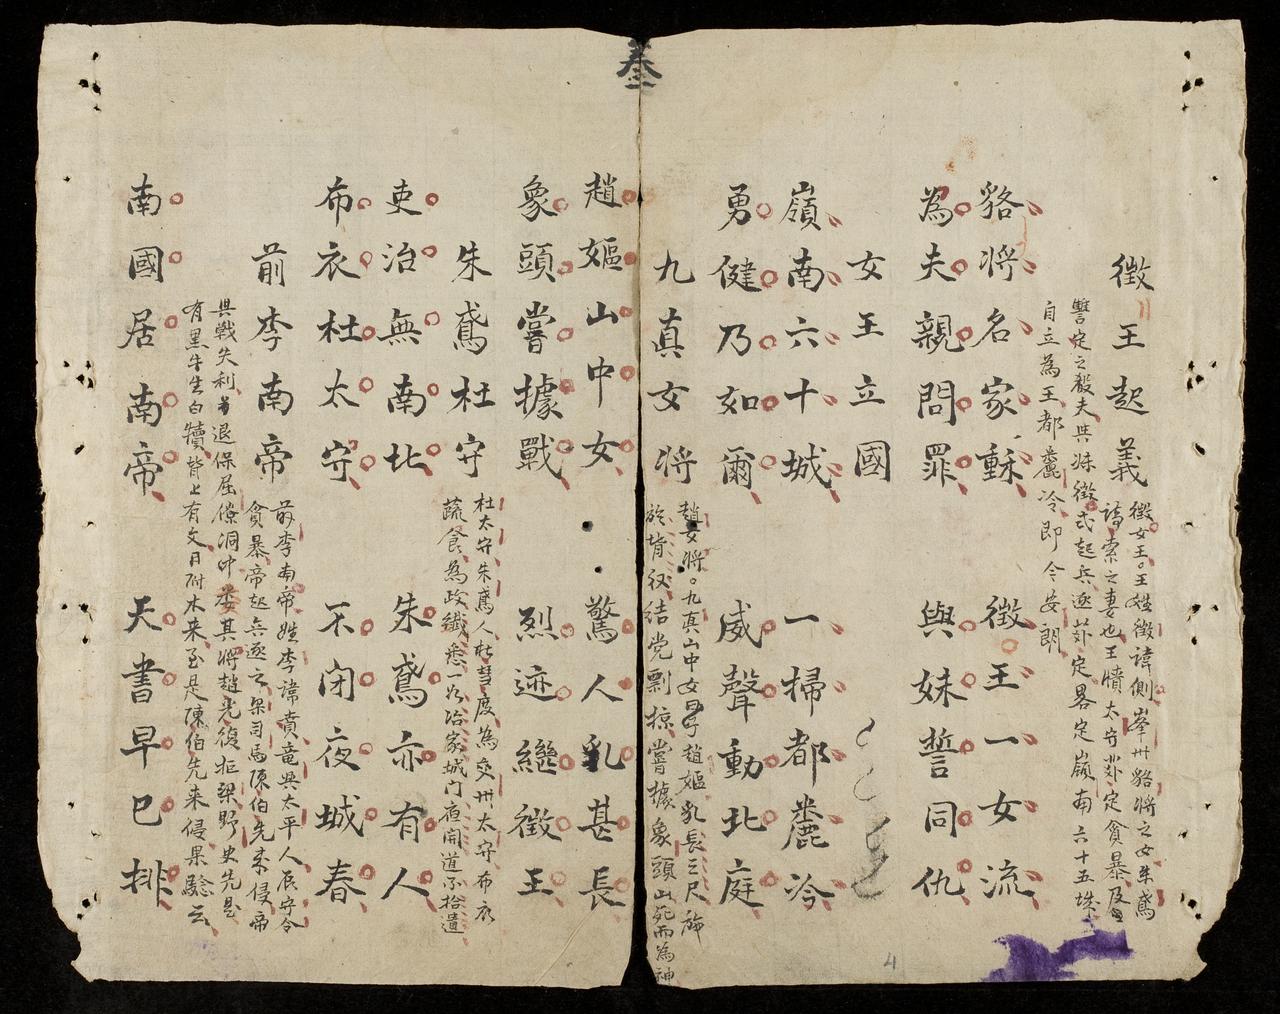 叁
徵王起義
徵女王。王姓徵諱側峯州貉將之女朱鳶
詩索之妻也王憤太守蘇定貪暴及
讐定之殺夫與妹徵弍起兵逐蘇定畧定嶺南六十五城
自立為王都麊冷即今安朗
貉將名家穌 徵王一女流
為夫親問罪 與妹誓同仇
女王立國
嶺南六十城 一掃都麊冷
勇健乃如爾 威聲動北庭
九真女將
趙女將。九真山中女曰趙嫗乳長三尺施
於背後結党剽掠嘗據象頭山死而為神
趙嫗山中女 驚人乳甚長
象頭嘗據戰 烈迹繼徵王
朱鳶杜守
杜太守朱鳶人杜彗度為交州太守布衣
蔬食為政纖悉一如治家城門夜開道不拾遺
吏治無南北 朱鳶亦有人
布衣杜太守 不閉夜城春
前李南帝
前李南帝姓李諱賁竜興太平人辰守令
貪暴帝起兵逐之梁司馬陳伯先來侵帝
與戰失利退保屈僚洞中委其將趙光復拒梁野史先是
有黑牛生白犢背上有文曰附木来至是陳伯先来侵果驗云
南國居南帝 天書早已排
4